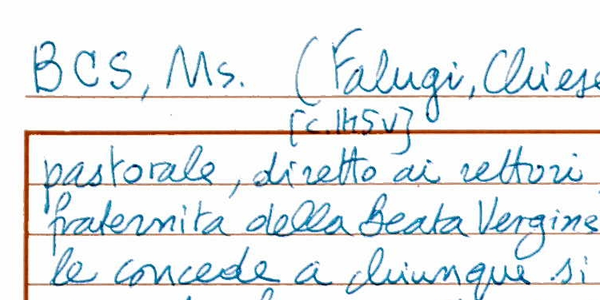 BCS, Ms. (Falugi, Chiese
[c.145v]
pastorale, diretto ai rettori
fraternita della Beata Vergine
le concede a chiunque si